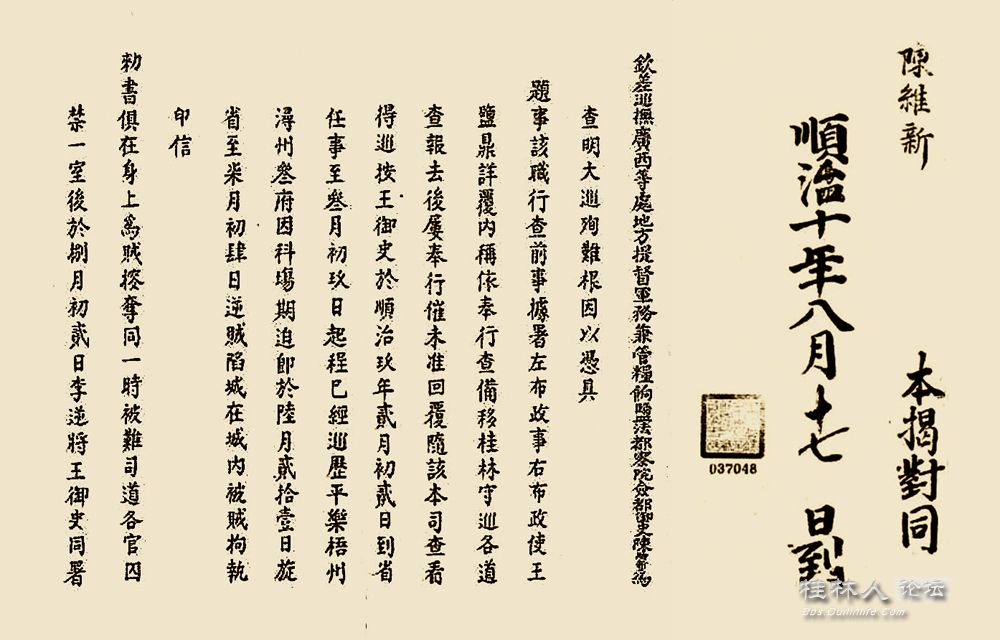 陳維新
本揭對同
順治十年八月十七日到
037048
欽差巡撫廣西等處地方提督軍務兼管糧餉鹽法都察院僉都御史陳 爲
查明大巡殉難根因以憑具
題事該職行查前事據署左布政事右布政使王
鹽鼎詳覆內稱依奉行查備移桂林守巡各道
查報去後屢奉行催未准回覆隨該本司查看
得巡按王御史於順治玖年貳月初貳日到省
任事至叁月初玖日起程已經巡歷平樂梧州
潯州叁府因科場期迫卽於陸月貳拾壹日旋
省至柒月初肆日逆賊陷城在城內被賊拘執
印信
勅書俱在身上爲賊搜奪同一時被難司道各官囚
禁一室後於捌月初貳日李逆將王御史同署
桂林人 论坛
Bbs.Guilinlife.Com